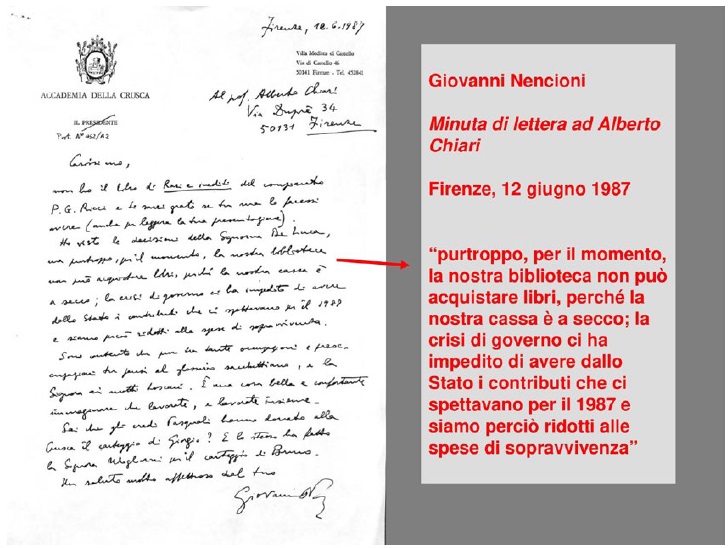 Firenze, 12.6.1987
Villa Medicea di Castello
Via di Castello 46
50141 Firenze - Tel. 452841
ACCADEMIA DELLA CRUSCA
IL PRESIDENTE
Prot. Nº 462/A2
Al prof. Alberto Chiari
Via Duprè 34
50131 Firenze
Carissimo,
non ho il libro di Rari e inediti del compianto
P. G. Ricci e te sarei grato se tu me lo facessi
avere (anche per leggere la tua presentazione).
Ho visto le decisioni della Signora De Luca,
ma purtroppo, per il momento, la nostra biblioteca
non può acquistare libri, perché la nostra cassa è
a secco; la crisi di governo ci ha impedito di avere
dallo Stato i contributi che ci spettavano per il 1987
e siamo perciò ridotti alle spese di sopravvivenza.
Sono contento che pur tra tante occupazioni e
tu pensi al glossario sacchettiano, e la
Signora ai motti toscani. È una cosa bella e confortante
immaginare che lavorate, e lavorate insieme.
Sai che gli eredi Pasquali hanno donato alla
Crusca il carteggio di Giorgio? E lo stesso ha fatto
la Signora Migliorini per il carteggio di Bruno.
Un saluto molto affettuoso dal tuo
Giovanni
Giovanni Nencioni
Minuta di lettera ad Alberto
Chiari
Firenze, 12 giugno 1987
“purtroppo, per il momento,
la nostra biblioteca non può
acquistare libri, perché la
nostra cassa è a secco; la
crisi di governo ci ha
impedito di avere dallo
Stato i contributi che ci
spettavano per il 1987 e
siamo perciò ridotti alle
spese di sopravvivenza”